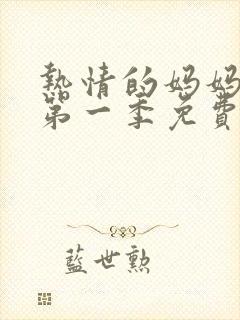 熱情的妈妈
第一季免費
藍世勲